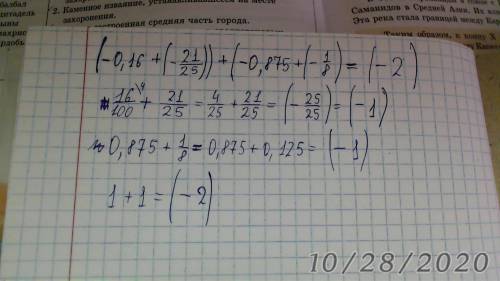 балбал
цитадель
2. Каменное изваяние, устанавливавшееся на месте
захоронения.
средняя часть города.
Саманидов в Средней Азии. Их
Эта река стала границей между
Таким образом, к концу X
(-0,16 + (-21/25)) + (-0,875 + (-1/8) = (-2)
16/100 \4 + 21/25 = 4/25 + 21/25 = (-25/25) = (-1)
0,875 + 1/8 = 0,875 + 0,125 = (-1)
1 + 1 = (-2)
10/28/2020